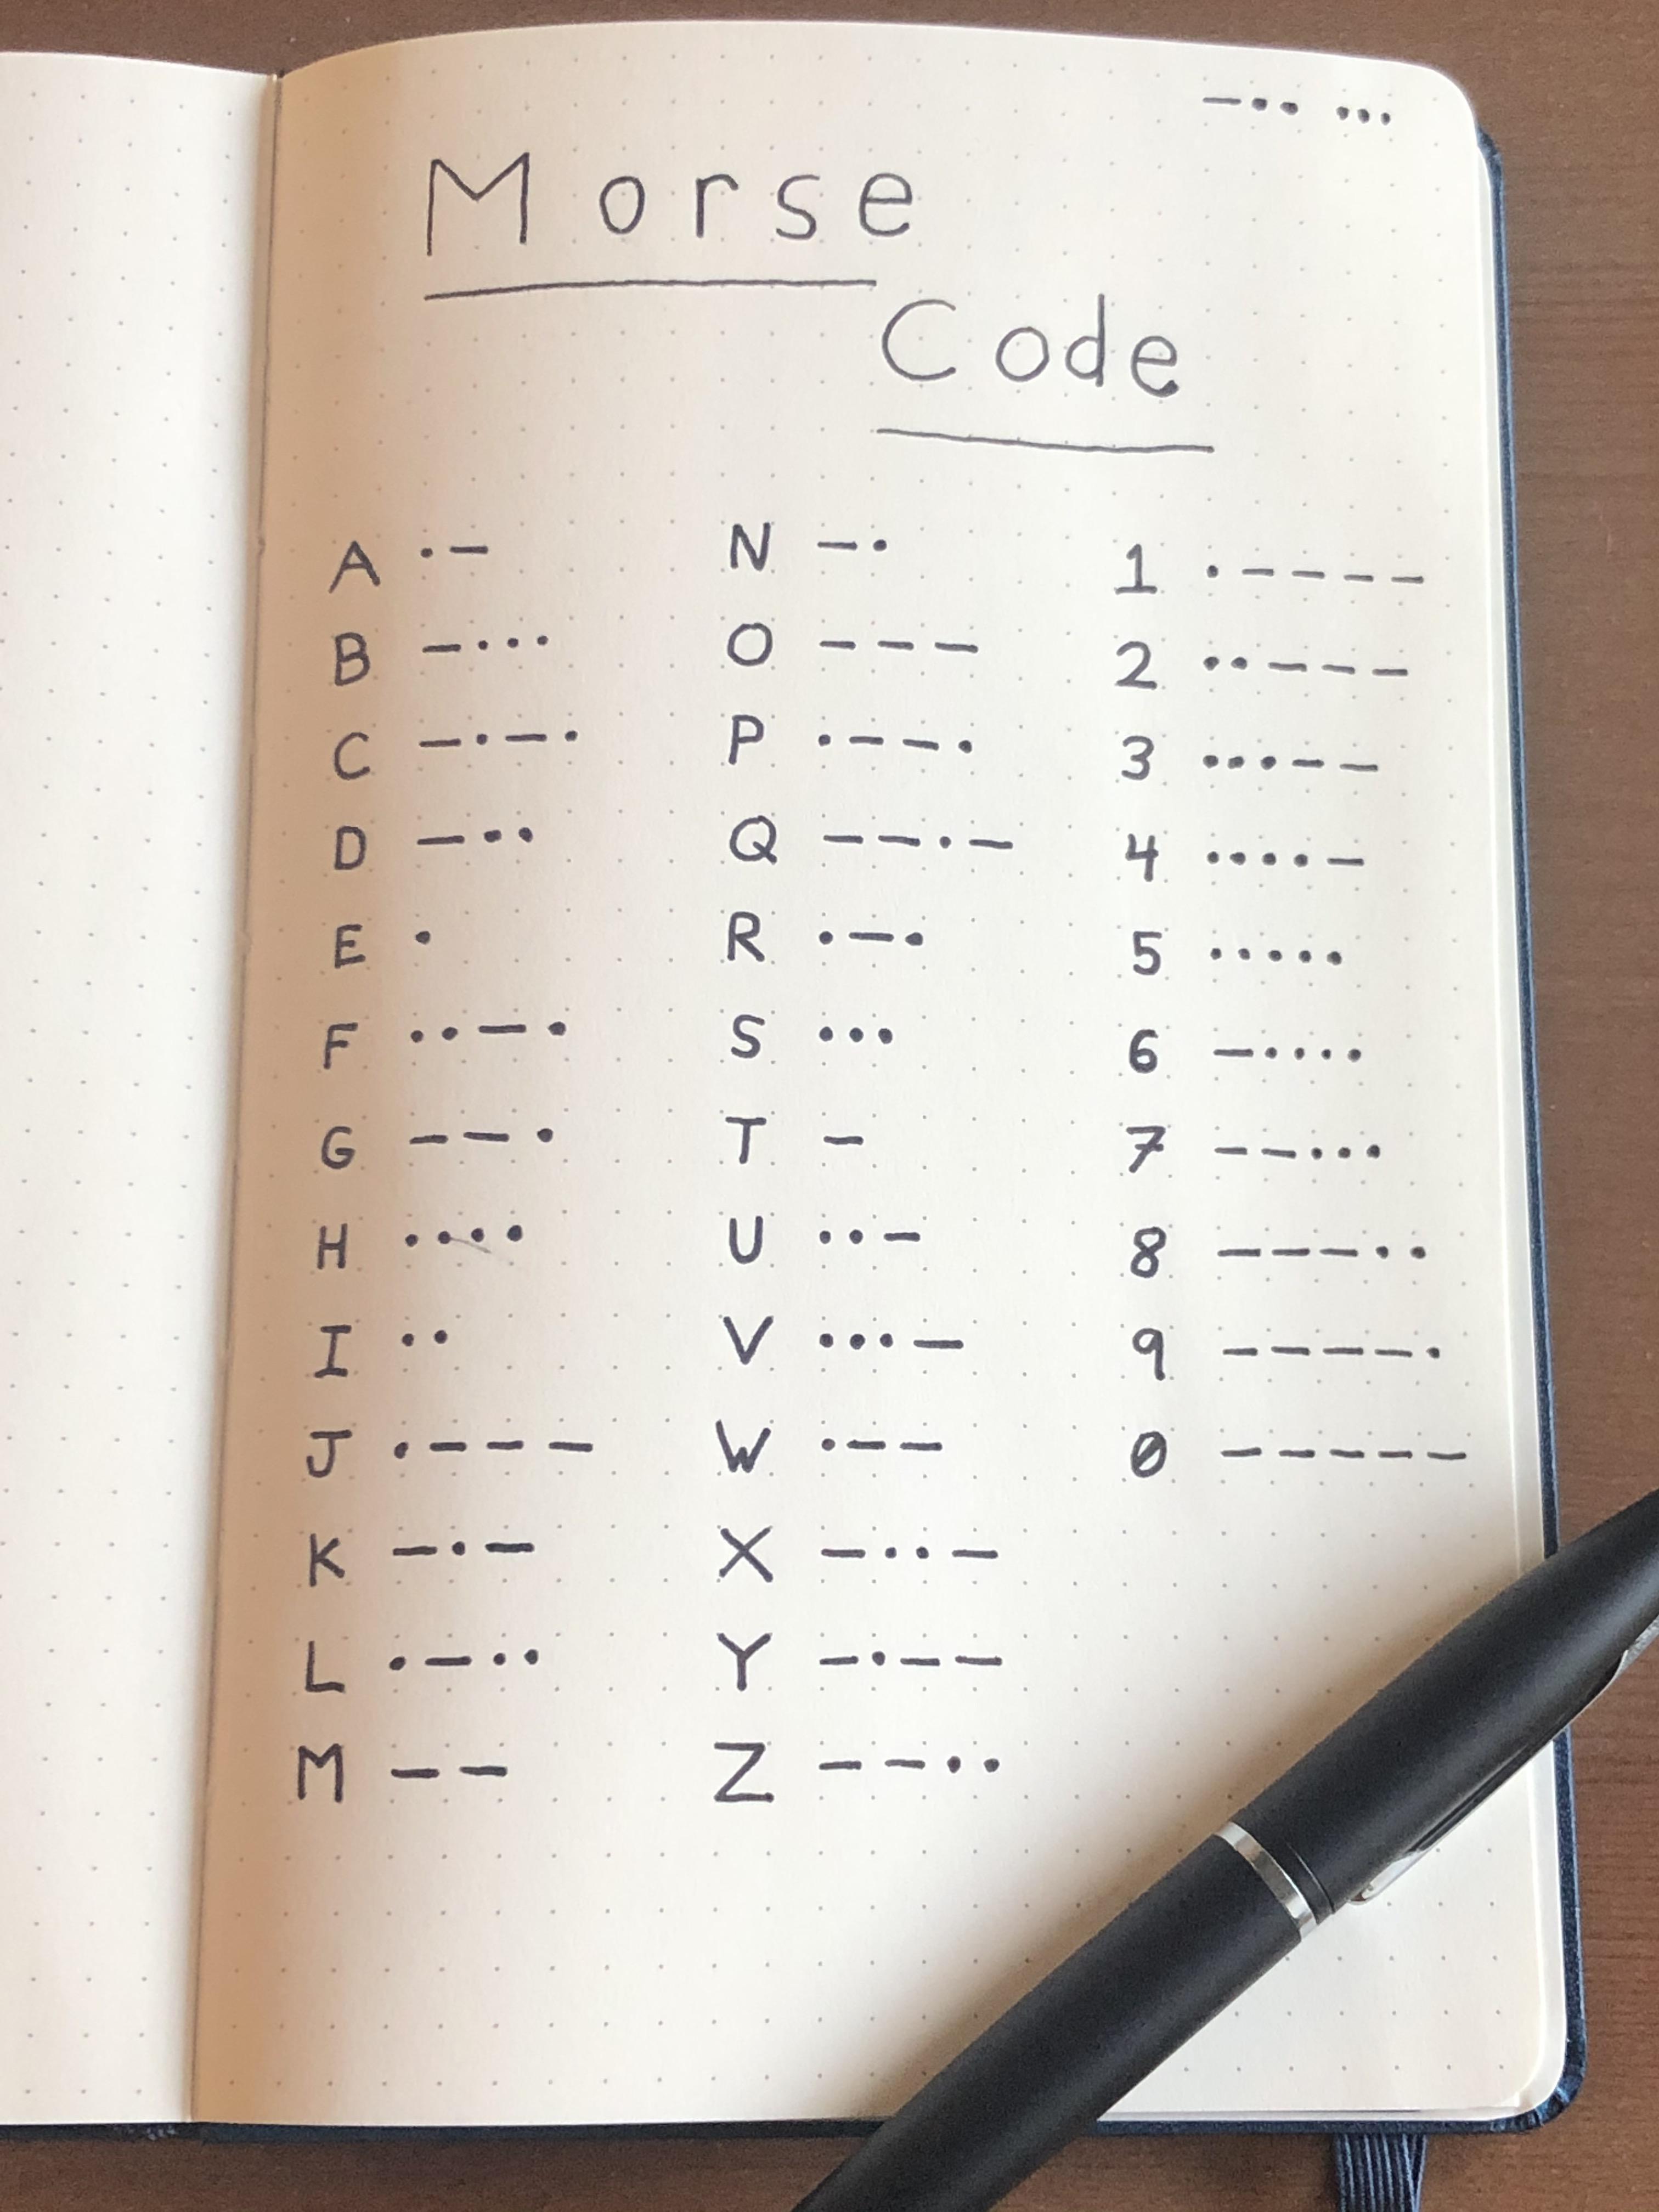 –·· ···
Morse
Code
A ·–
B –···
C –·–·
D –··
E ·
F ··–·
G ––·
H ····
I ··
J ·–––
K –·–
L ·–··
M ––
N –·
O –––
P ·––·
Q ––·–
R ·–·
S ···
T –
U ··–
V ···–
W ·––
X –··–
Y –·––
Z ––··
1 ·––––
2 ··–––
3 ···––
4 ····–
5 ·····
6 –····
7 ––···
8 –––··
9 ––––·
0 –––––